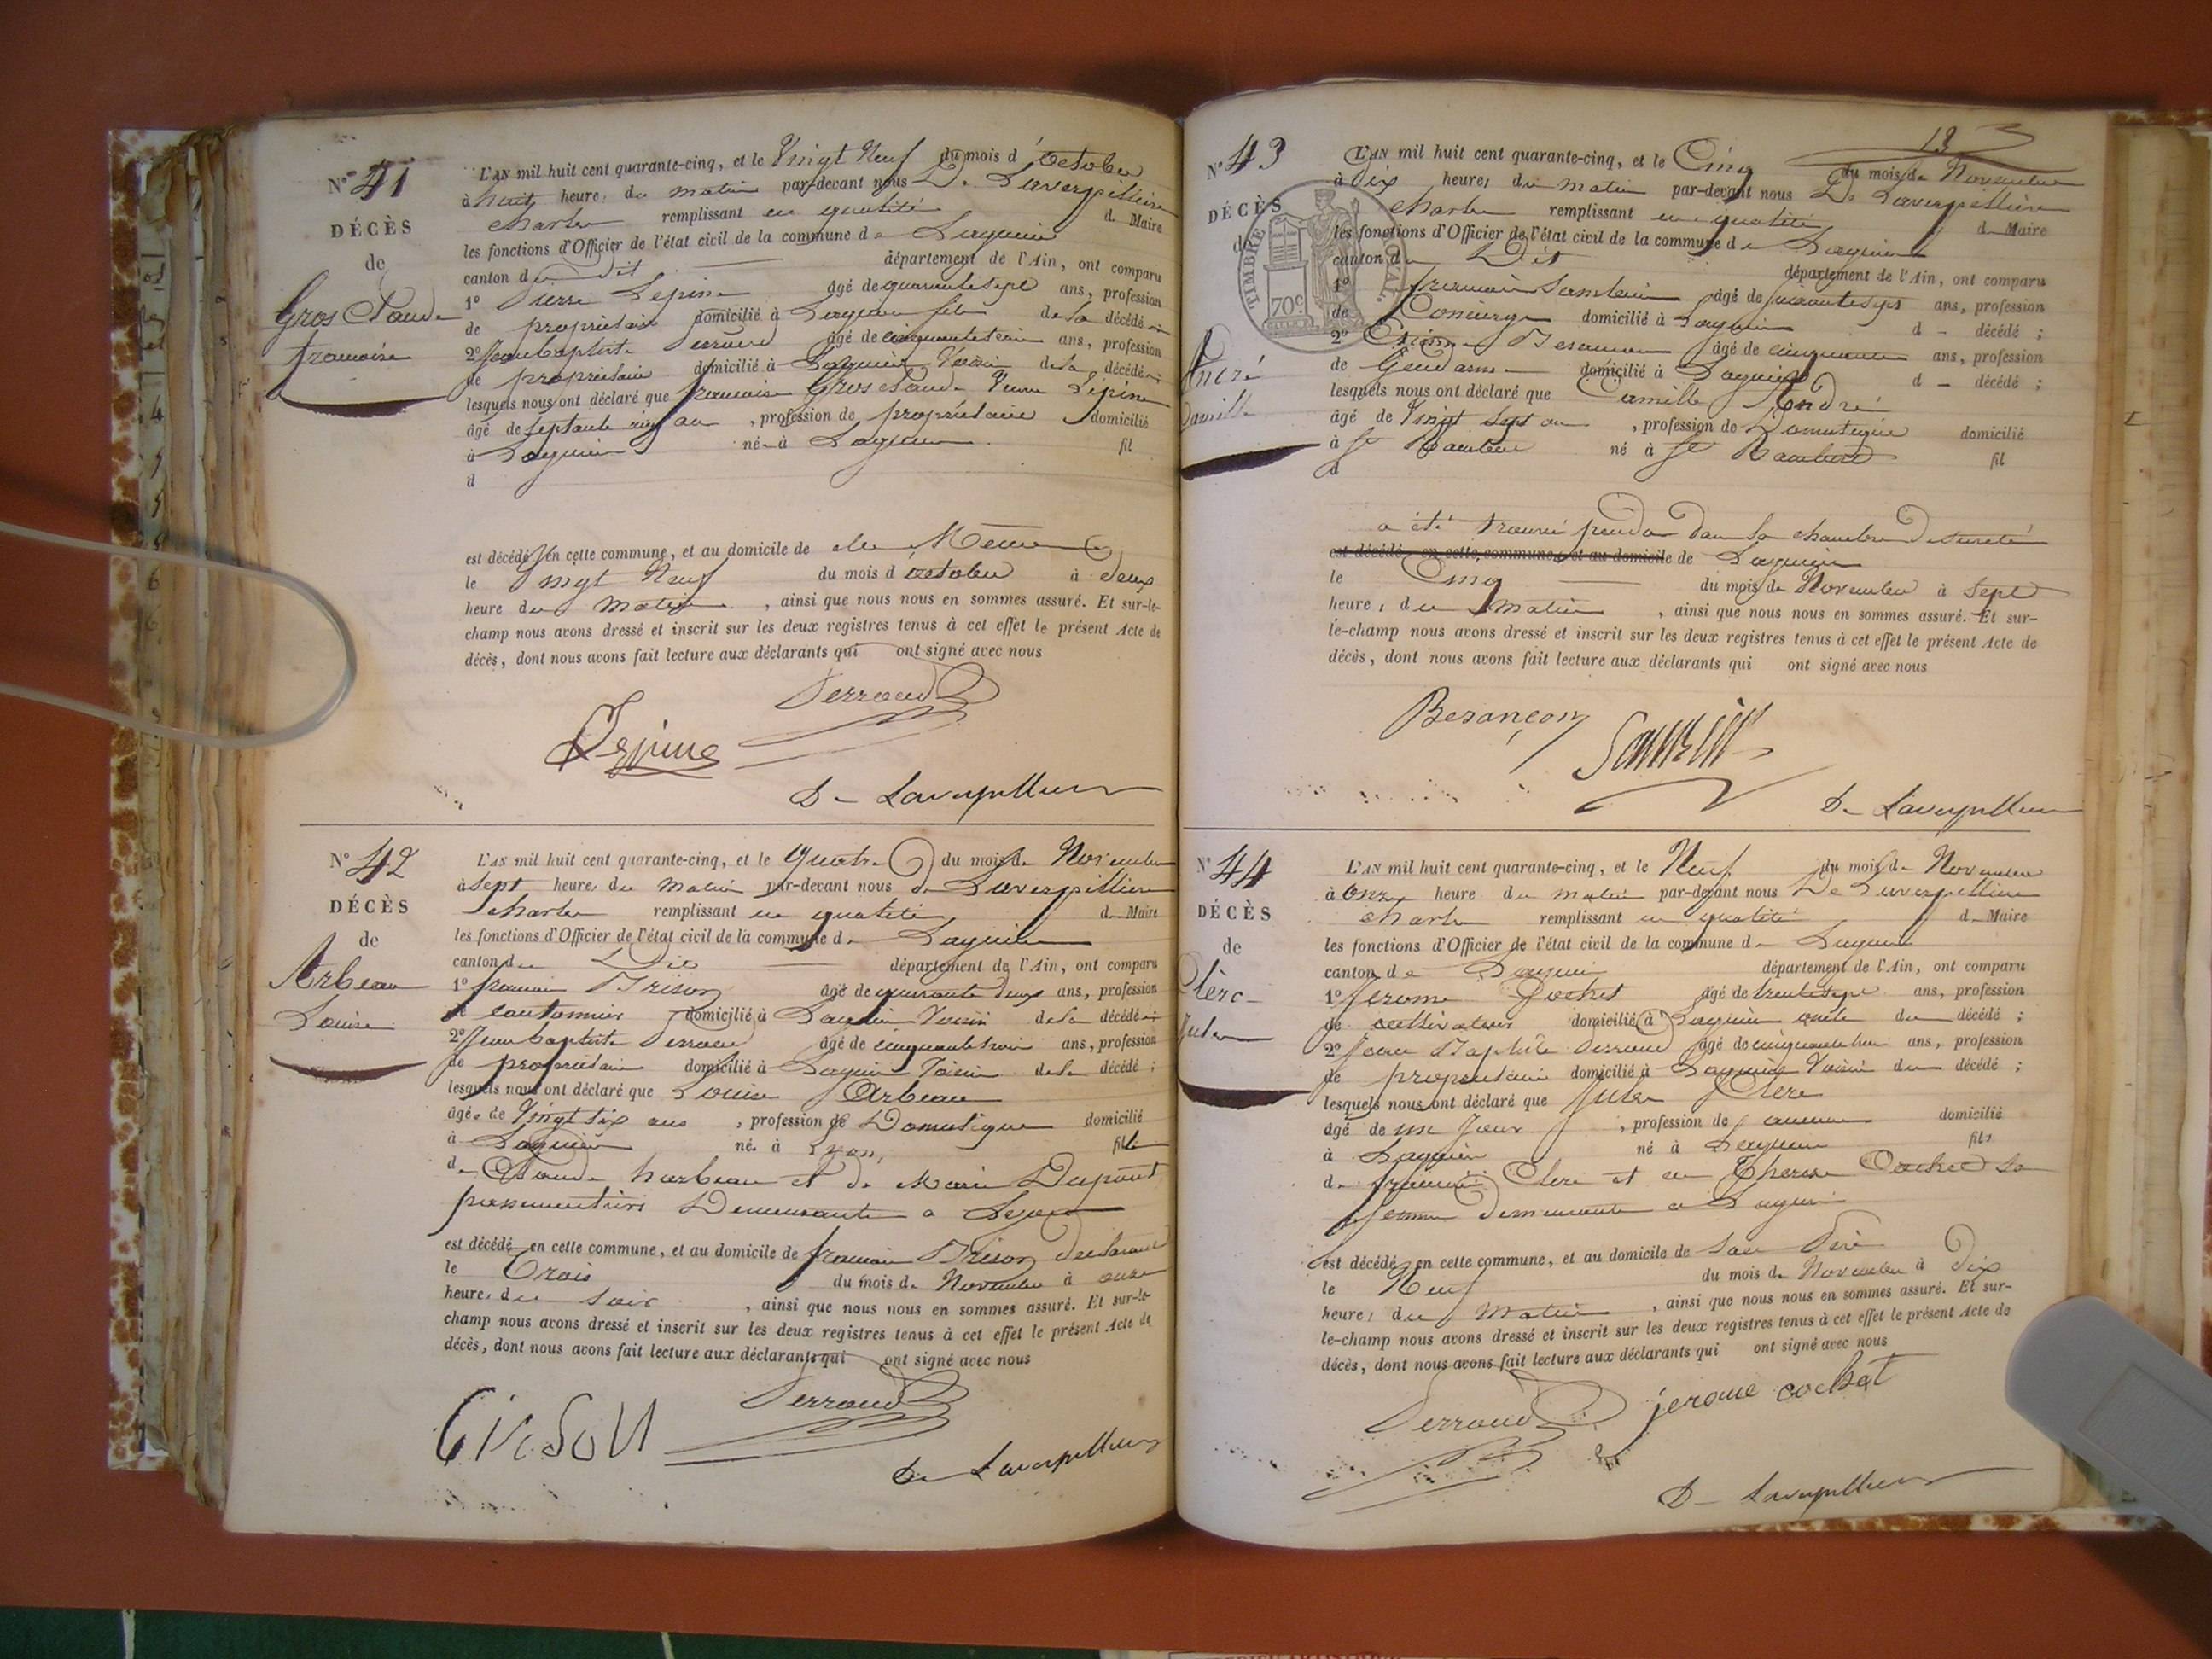 N° 41
DÉCÈS
de
Gros Claude
francoise
L'AN mil huit cent quarante-cinq, et le Vingt Neuf du mois d'octobre
à huit heures du matin par-devant nous De Laverpilliere
charles remplissant en qualité de Maire
les fonctions d'Officier de l'état civil de la commune de Lagnieu
canton du dit département de l'Ain, ont comparu
1° Pierre Lepine âgé de quarante sept ans, profession
de propriétaire domicilié à Lagnieu fils de la décédée
2° Jean baptiste Perroud âgé de cinquante trois ans, profession
de propriétaire domicilié à Lagnieu Voisin de la décédée
lesquels nous ont déclaré que francoise Gros Claude Veuve Lépine
âgé de septante cinq ans, profession de propriétaire domicilié
à Lagnieu née à Lagnieu fil
d
est décédé en cette commune, et au domicile de elle Même
le Vingt Neuf du mois d'octobre à deux
heure du matin, ainsi que nous nous en sommes assuré. Et sur-le-
champ nous avons dressé et inscrit sur les deux registres tenus à cet effet le présent Acte de
décès, dont nous avons fait lecture aux déclarants qui ont signé avec nous
Perroud
Lepine
De Laverpilliere
N° 42
DÉCÈS
de
Arbeau
Louise
L'AN mil huit cent quarante-cinq, et le quatre du mois de Novembre
à sept heures du matin par-devant nous de Laverpilliere
charles remplissant en qualité de Maire
les fonctions d'Officier de l'état civil de la commune de Lagnieu
canton du Dit département de l'Ain, ont comparu
1° francois Brison âgé de quarante deux ans, profession
de cantonnier domicilié à Lagnieu Voisin de la décédée
2° Jean baptiste Perroud âgé de cinquante trois ans, profession
de propriétaire domicilié à Lagnieu Voisin de la décédé ;
lesquels nous ont déclaré que Louise Arbeau
âgée de Vingt six ans, profession de Domestique domicilié
à Lagnieu née à Lyon, fille
de Claude harbeau et de Marie Dupont
Demeurante a Lyon
est décédé en cette commune, et au domicile de francois Brison declarant
le Trois du mois de Novembre à onze
heures du soir, ainsi que nous nous en sommes assuré. Et sur-le-
champ nous avons dressé et inscrit sur les deux registres tenus à cet effet le présent Acte de
décès, dont nous avons fait lecture aux déclarants qui ont signé avec nous
Perroud
De Laverpilliere
13
N° 43
DÉCÈS
de
André
Camille
TIMBRE ROYAL
70c
L'AN mil huit cent quarante-cinq, et le Cinq du mois de Novembre
à dix heures du matin par-devant nous De Laverpilliere
charles remplissant en qualité de Maire
les fonctions d'Officier de l'état civil de la commune de Lagnieu
canton du Dit département de l'Ain, ont comparu
1° francois âgé de quarante sept ans, profession
de Concierge domicilié à Lagnieu d - décédé ;
2° Besancon âgé de cinquante ans, profession
de Gendarme domicilié à Lagnieu d - décédé ;
lesquels nous ont déclaré que Camille André
âgé de Vingt Sept ans, profession de Domestique domicilié
à St Rambert né à St Rambert fil
d
a été trouvé pendu dans la chambre de sureté
est décédé en cette commune, et au domicile de Lagnieu
le Cinq du mois de Novembre à Sept
heures du matin, ainsi que nous nous en sommes assuré. Et sur-
le-champ nous avons dressé et inscrit sur les deux registres tenus à cet effet le présent Acte de
décès, dont nous avons fait lecture aux déclarants qui ont signé avec nous
Besançon
De Laverpilliere
N° 44
DÉCÈS
de
Clerc
Jules
L'AN mil huit cent quarante-cinq, et le Neuf du mois de Novembre
à onze heure du matin par-devant nous De Laverpilliere
charles remplissant en qualité de Maire
les fonctions d'Officier de l'état civil de la commune de Lagnieu
canton de Lagnieu département de l'Ain, ont comparu
1° Jerome Cochet âgé de trente sept ans, profession
de cultivateur domicilié à Lagnieu oncle du décédé ;
2° Jean Baptiste Perroud âgé de cinquante trois ans, profession
de propriétaire domicilié à Lagnieu Voisin du décédé ;
lesquels nous ont déclaré que Jules Clerc
âgé de un Jour, profession de aucune domicilié
à Lagnieu né à Lagnieu fils
de francois Clerc et de Therese Cochet sa
femme demeurante a Lagnieu
est décédé en cette commune, et au domicile de son Père
le Neuf du mois de Novembre à dix
heures du matin, ainsi que nous nous en sommes assuré. Et sur-
le-champ nous avons dressé et inscrit sur les deux registres tenus à cet effet le présent Acte de
décès, dont nous avons fait lecture aux déclarants qui ont signé avec nous
Perroud jerome cochet
De Laverpilliere